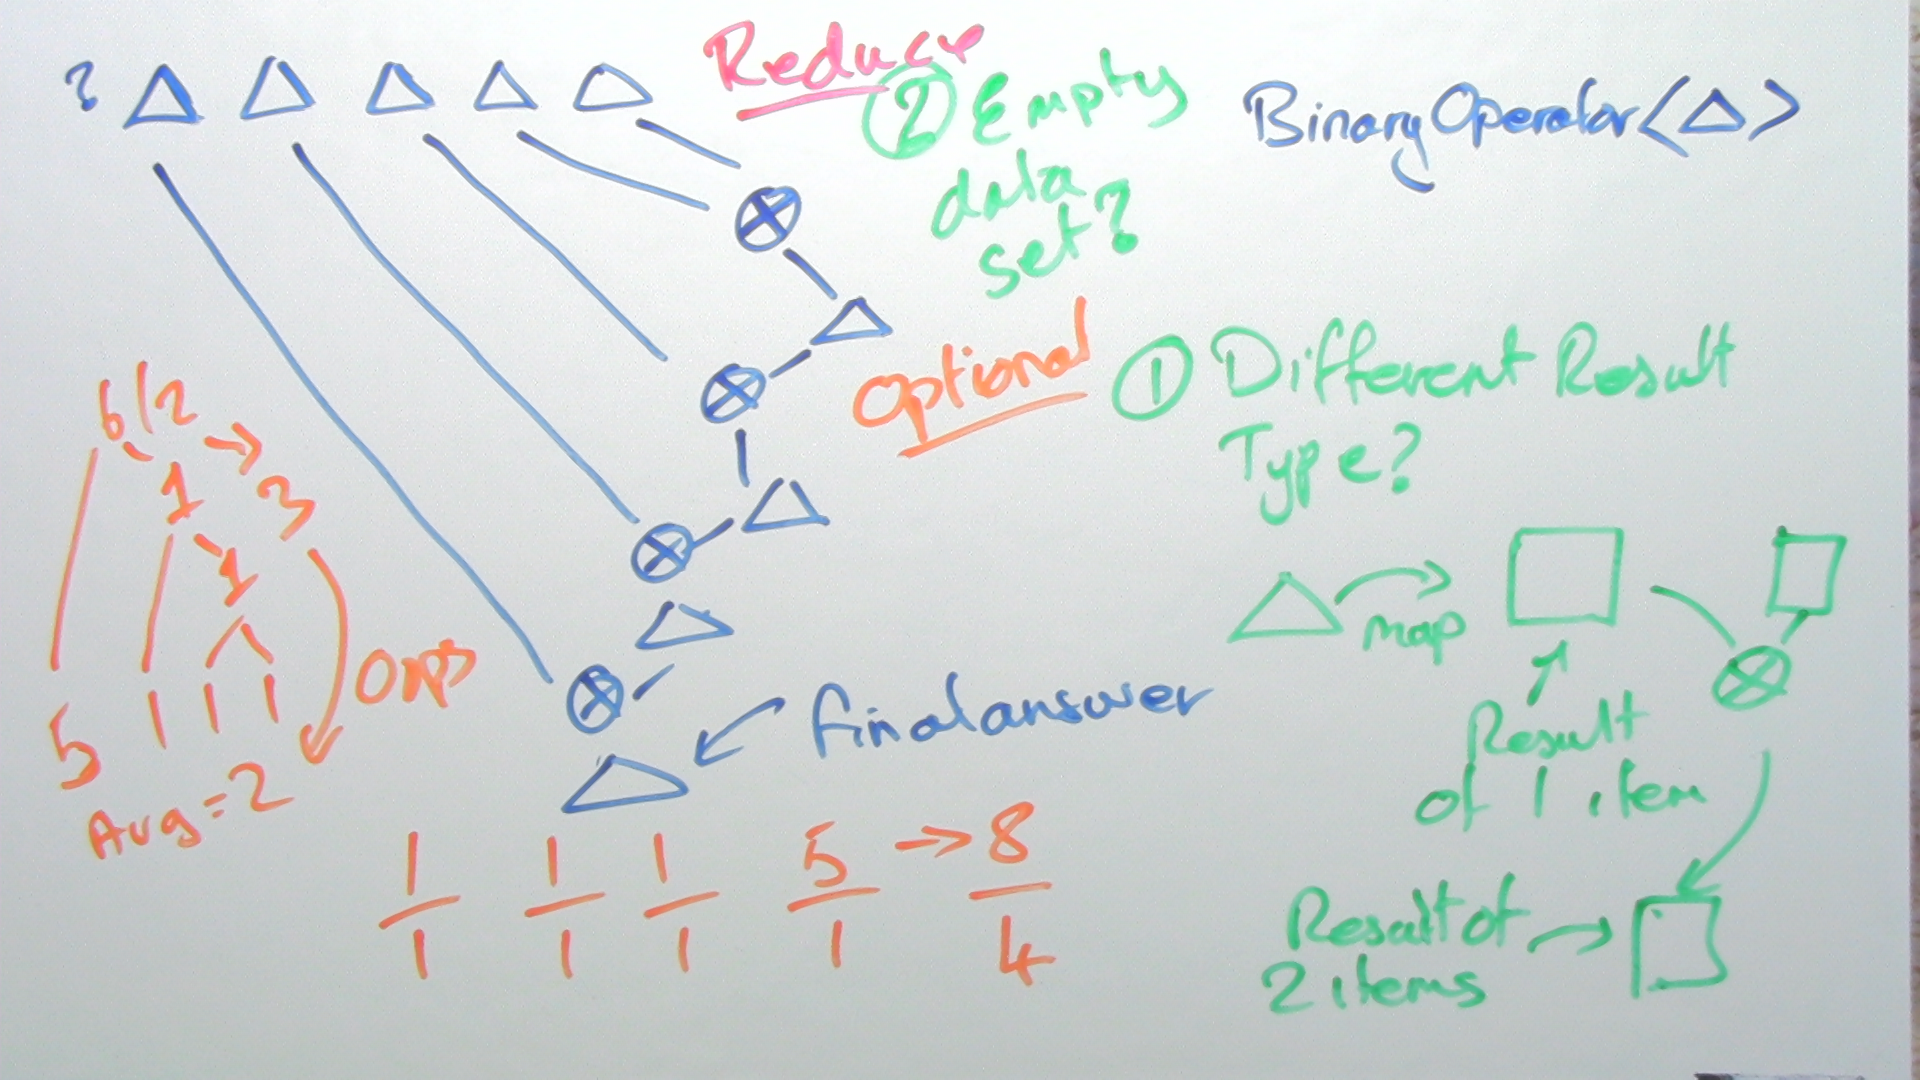 ?
Reduce
② Empty
data
set?
BinaryOperator<△>
Optional
① Different Result
Type?
6/2
1 → 3
1
5 1 1 1
Oops
Avg = 2
final answer
map
Result
of 1 item
Result of
2 items
1 1 1 5 → 8
1 1 1 1 4